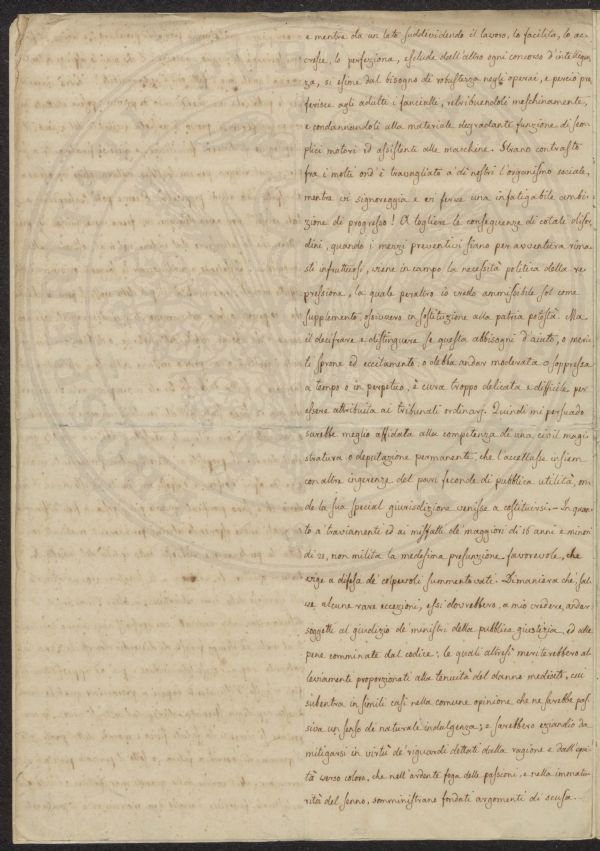 e mentre da un lato suddividendo il lavoro, lo facilita, lo ac-
cresce, lo perfeziona, esclude dall'altro ogni concorso d'intelligen-
za, si esime dal bisogno di robustezza negli operai, e perciò pre-
ferisce agli adulti i fanciulli, retribuendoli meschinamente,
e condannandoli alla materiale degradante funzione di sem-
plici motori ed assistenti alle macchine. Strano contrasto
fra i molti ond'è travagliato a dì nostri l'organismo sociale,
mentre vi signoreggia e vi ferve una infatigabile ambi-
zione di progresso! A togliere le conseguenze di cotali disor-
dini, quando i mezzi preventivi siano per avventura rima-
sti infruttuosi, viene in campo la necessità politica della re-
pressione, la quale peraltro io credo ammissibile sol come
supplemento, ossivvero in sostituzione alla patria potestà. Ma
il decifrare e distinguere se questa abbisogni d'aiuto, o meri-
ti sprone ed eccitamento, o debba andar moderata o soppressa
a tempo o in perpetuo, è cura troppo delicata e difficile per
essere attribuita ai tribunali ordinarj. Quindi mi persuado
sarebbe meglio affidata alla competenza di una civil magi-
stratura o deputazione permanente, che l'accettasse insiem
con altre ingerenze del pari feconde di pubblica utilità, on-
de la sua special giurisdizione venisse a costituirsi. - In quan-
to a' traviamenti ed ai misfatti de' maggiori di 16 anni e minori
di 21, non milita la medesima presunzione favorevole, che
erge a difesa de' colpevoli summentovati. Dimaniera che, sal-
ve alcune rare eccezioni, essi dovrebbero, a mio credere, andar
soggetti al giudizio de' ministri della pubblica giustizia, ed alle
pene comminate dal codice; le quali altresì meriterebbero al-
leviamento proporzionati alla tenuità del danno mediato, cui
subentra in simili casi nella comune opinione che ne sarebbe pas-
siva un senso di naturale indulgenza; e sarebbero eziandio da
mitigarsi in virtù de' riguardi dettati dalla ragione e dall'equi-
tà verso coloro, che nell'ardente foga delle passioni, e nella immatu-
rità del senno, somministrano fondati argomenti di scusa. -